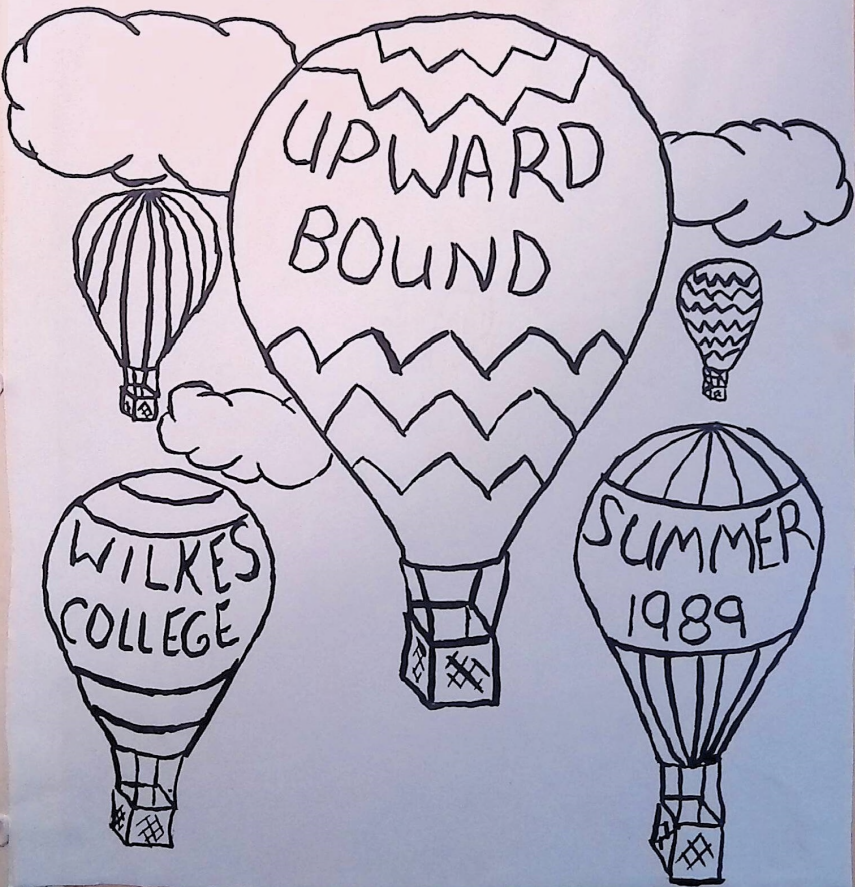 UPWARD
BOUND
WILKES
COLLEGE
SUMMER
1989